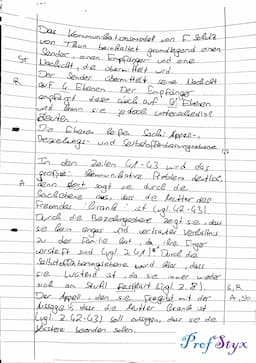 Das Kommunikationsmodel von F. Schulz
von Thun beinhaltet grundlegend einen
St Sender, einen Empfänger und eine
Nachricht, die übermittelt wird.
R Der Sender übermittelt seine Nachricht
auf 4 Ebenen. Der Empfänger
empfängt diese auch auf 4 Ebenen
und kann sie jedoch unterschiedlich
deuten.
Die Ebenen heißen Sach-, Appell-,
Beziehungs- und Selbstoffenbarungsebene
In den Zeilen 41-43 wird das
größte kommunikative Problem deutlich,
A denn dort sagt sie durch die
Sachebene aus, dass die Mutter des
Freundes "krank" ist (vgl. 42-43).
Durch die Beziehungsebene zeigt sie, dass
sie kein enges und vertrautes Verhältnis
zu der Familie hat, da ihre Finger
versteift sind (vgl. Z 41). Durch die
Selbstoffenbarungsebene wird klar, dass
sie ist, da sie immer wieder
sich am Stuhl festhält (vgl. Z. 8). G, R
Der Appell, den sie mit der A, Sb
Aussage, dass die Mutter krank ist
(vgl. Z 42-43) soll zeigen, dass sie die
werden sollen.
Prof Styx